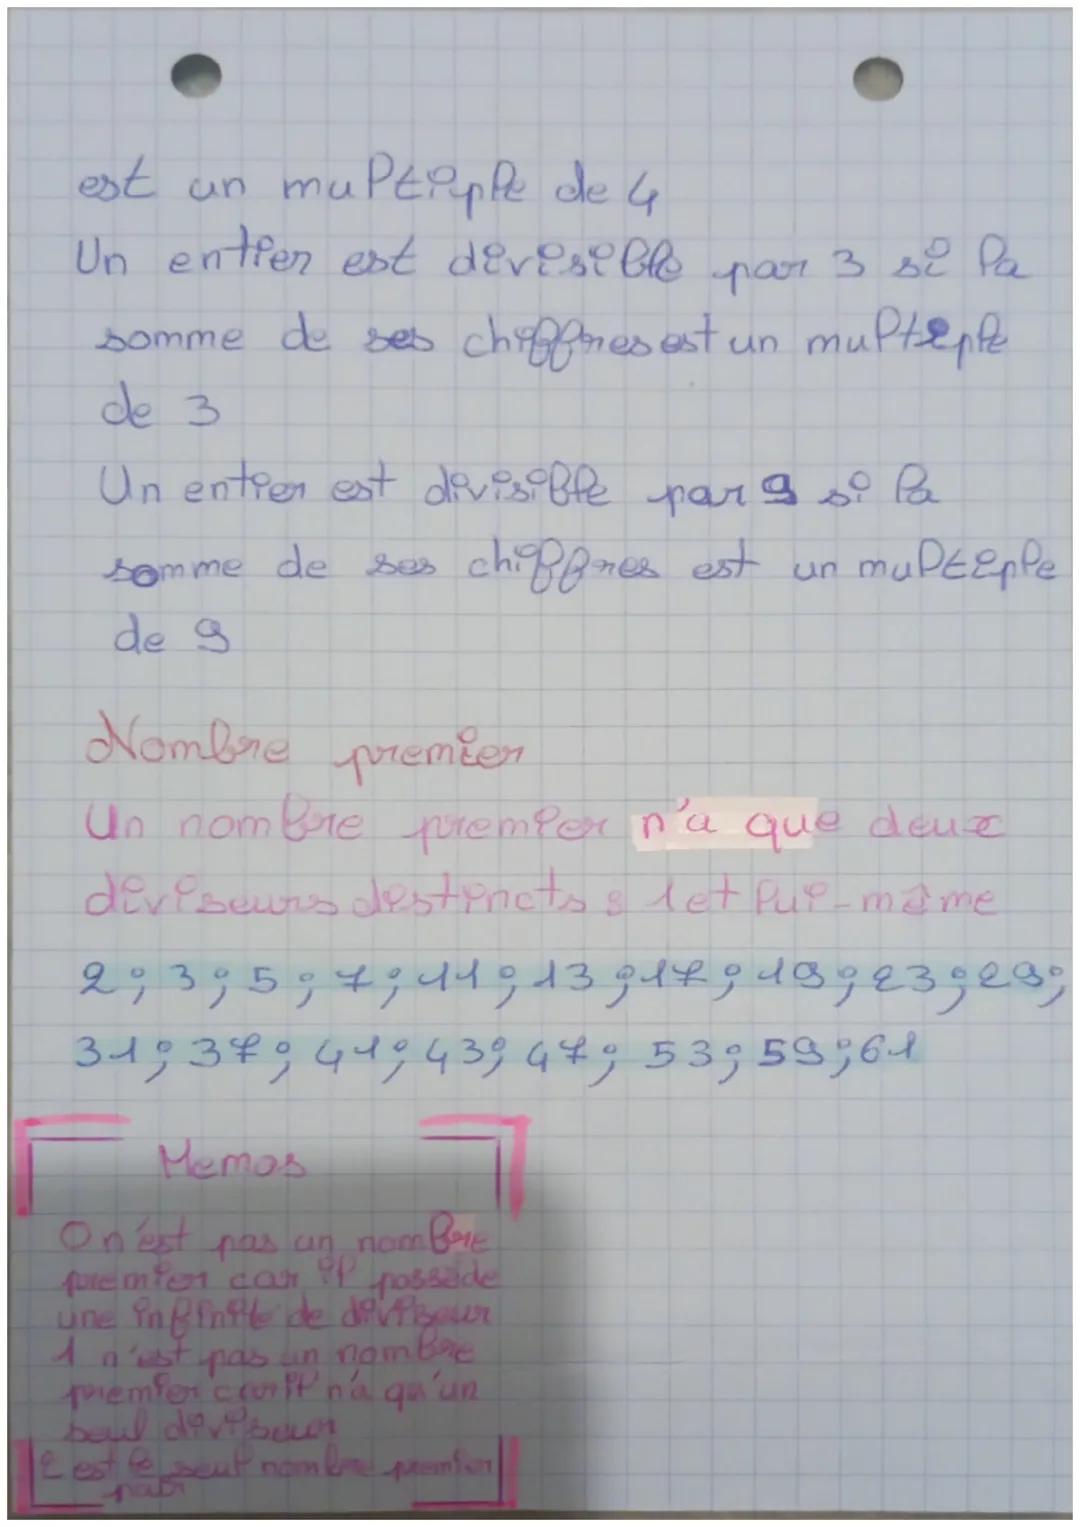 est un multiple de 4
Un entier est divisible par 3 si la
somme de ses chiffres est un multiple
de 3
Un entier est divisible par 9 si la
somme de ses chiffres est un multiple
de 9
Nombre premier
Un nombre premier n'a que deux
diviseurs distincts : 1 et lui-même
2 ; 3 ; 5 ; 7 ; 11 ; 13 ; 17 ; 19 ; 23 ; 29 ;
31 ; 37 ; 41 ; 43 ; 47 ; 53 ; 59 ; 61
Memos
0 n'est pas un nombre
premier car il possède
une infinité de diviseur
1 n'est pas un nombre
premier car il n'a qu'un
seul diviseur
2 est le seul nombre premier
pair